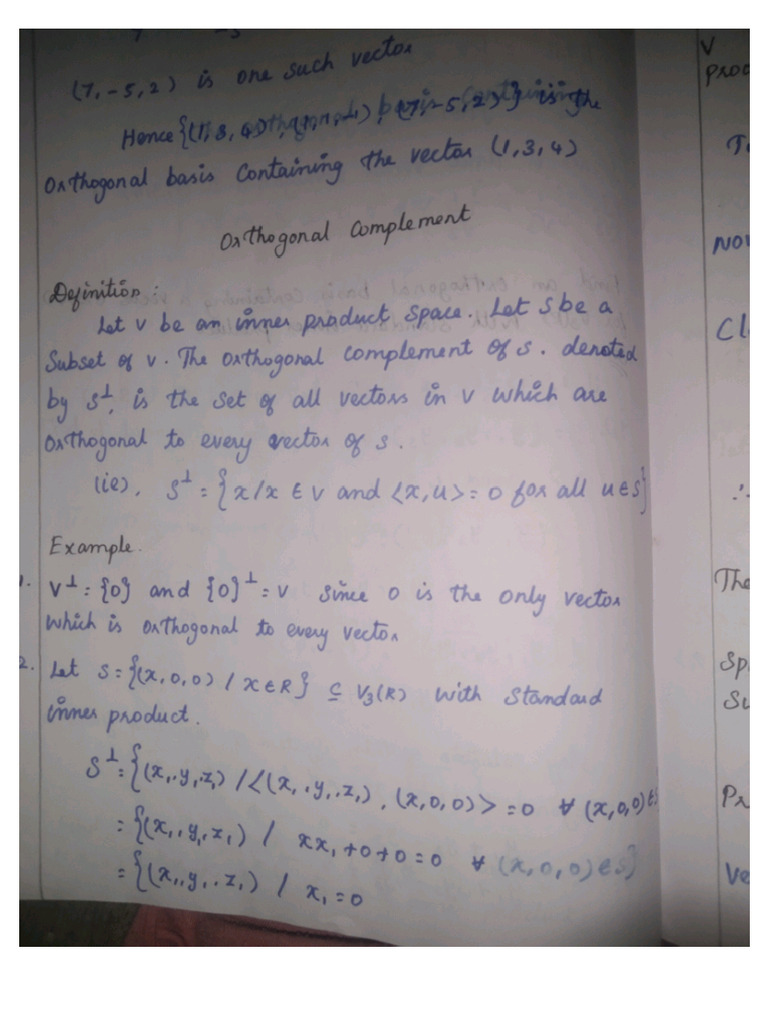 (7,-5,2) is one such vector
Hence {(1,3,4), (1,1,-1), (7,-5,2)} is the
Orthogonal basis Containing the vector (1,3,4)
Orthogonal Complement
Definition:
Let V be an inner product Space. Let S be a
Subset of V. The orthogonal complement of S. denoted
by S⊥, is the set of all vectors in V which are
Orthogonal to every vector of S.
(ie), S⊥ = {x/x ∈ V and <x,u> = 0 for all u∈S}
Example.
1. V⊥ = {0} and {0}⊥ = V since 0 is the only vector
which is orthogonal to every vector
2. Let S = {(x,0,0) / x∈R} ⊆ V3(R) with Standard
inner product.
S⊥ = {(x1,y1,z1) / <(x1,y1,z1), (x,0,0)> = 0 ∀ (x,0,0)∈S
= {(x1,y1,z1) / xx1+0+0=0 ∀ (x,0,0)∈S}
= {(x1,y1,z1) / x1=0
V
Proc
Now
Cl
∴
The
Sp
Su
Pr
Ve